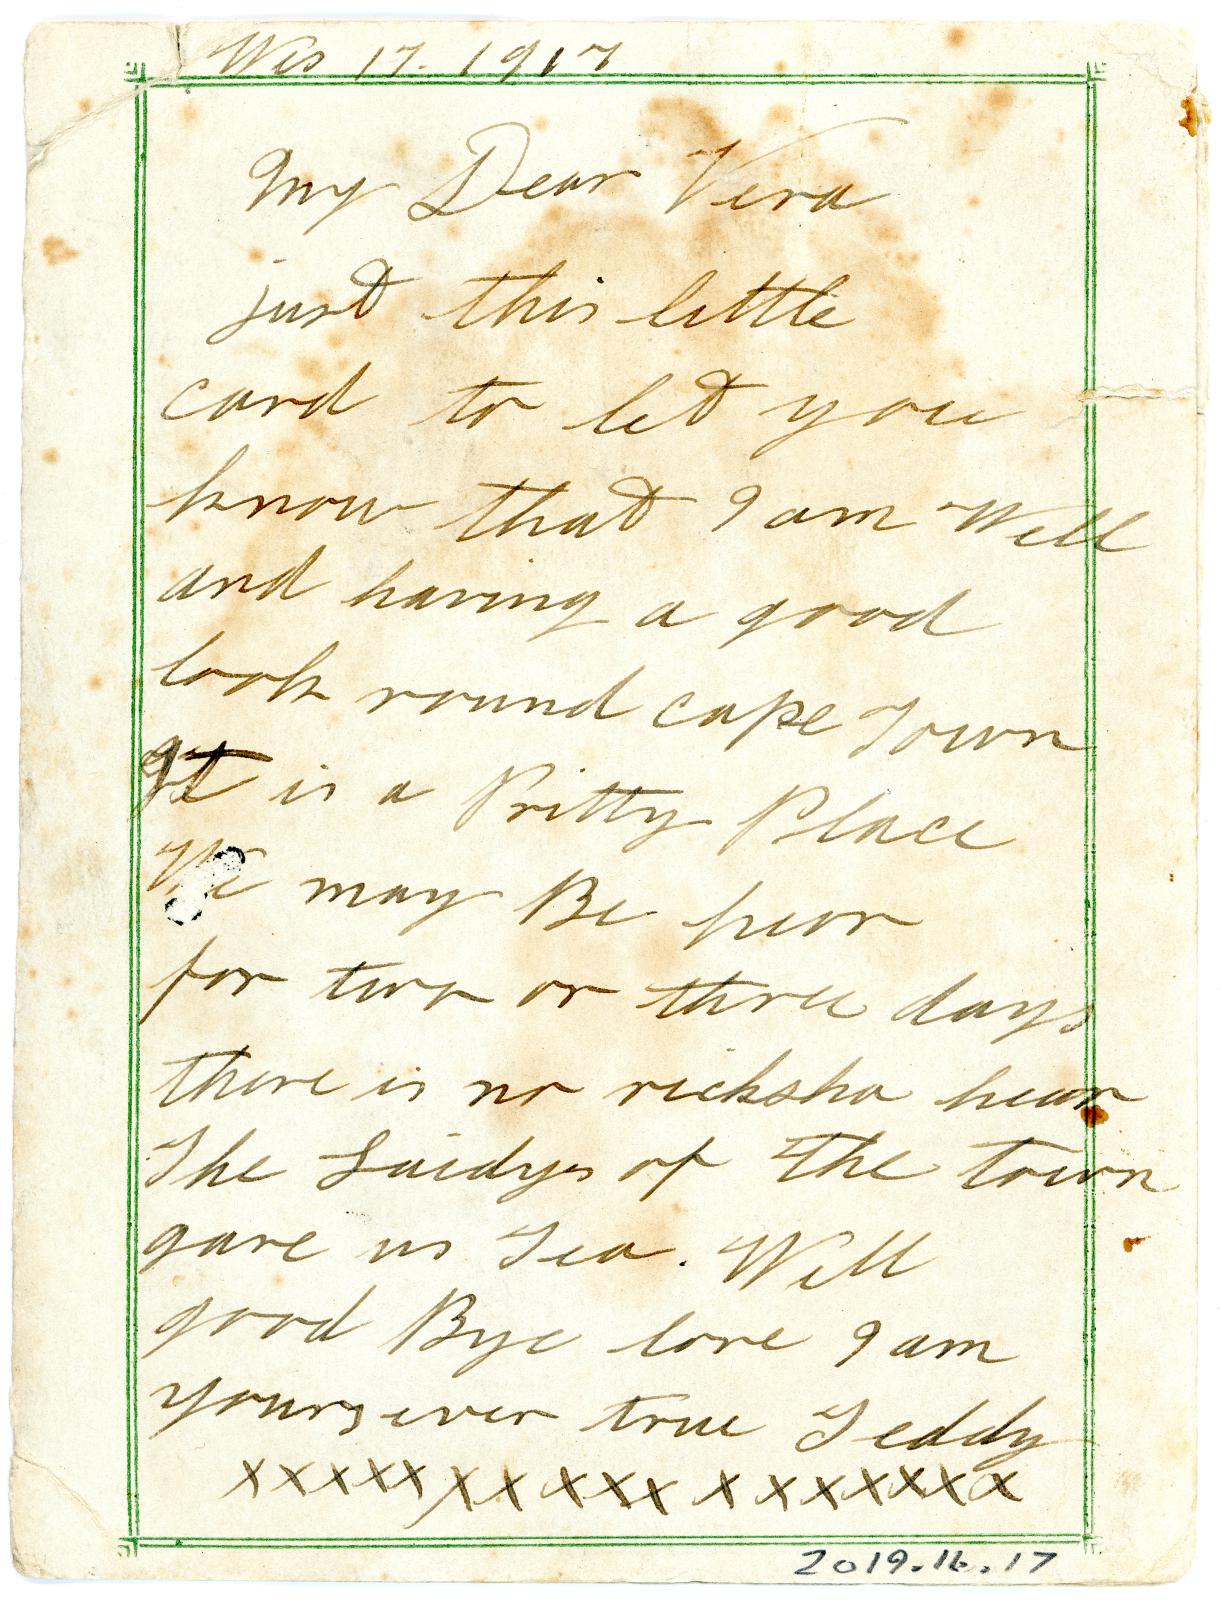 Wes 17. 1917
My Dear Vera
just this little
card to let you
know that I am Well
and having a good
look round cape Town
It is a Pritty Place
We may Be hear
for two or three days
there is no ricksha hear
The Laidys of The town
gave us Tea. Well
good Bye love I am
yours ever true Teddy
xxxxxxxxxxxxxxxxx
2019.16.17